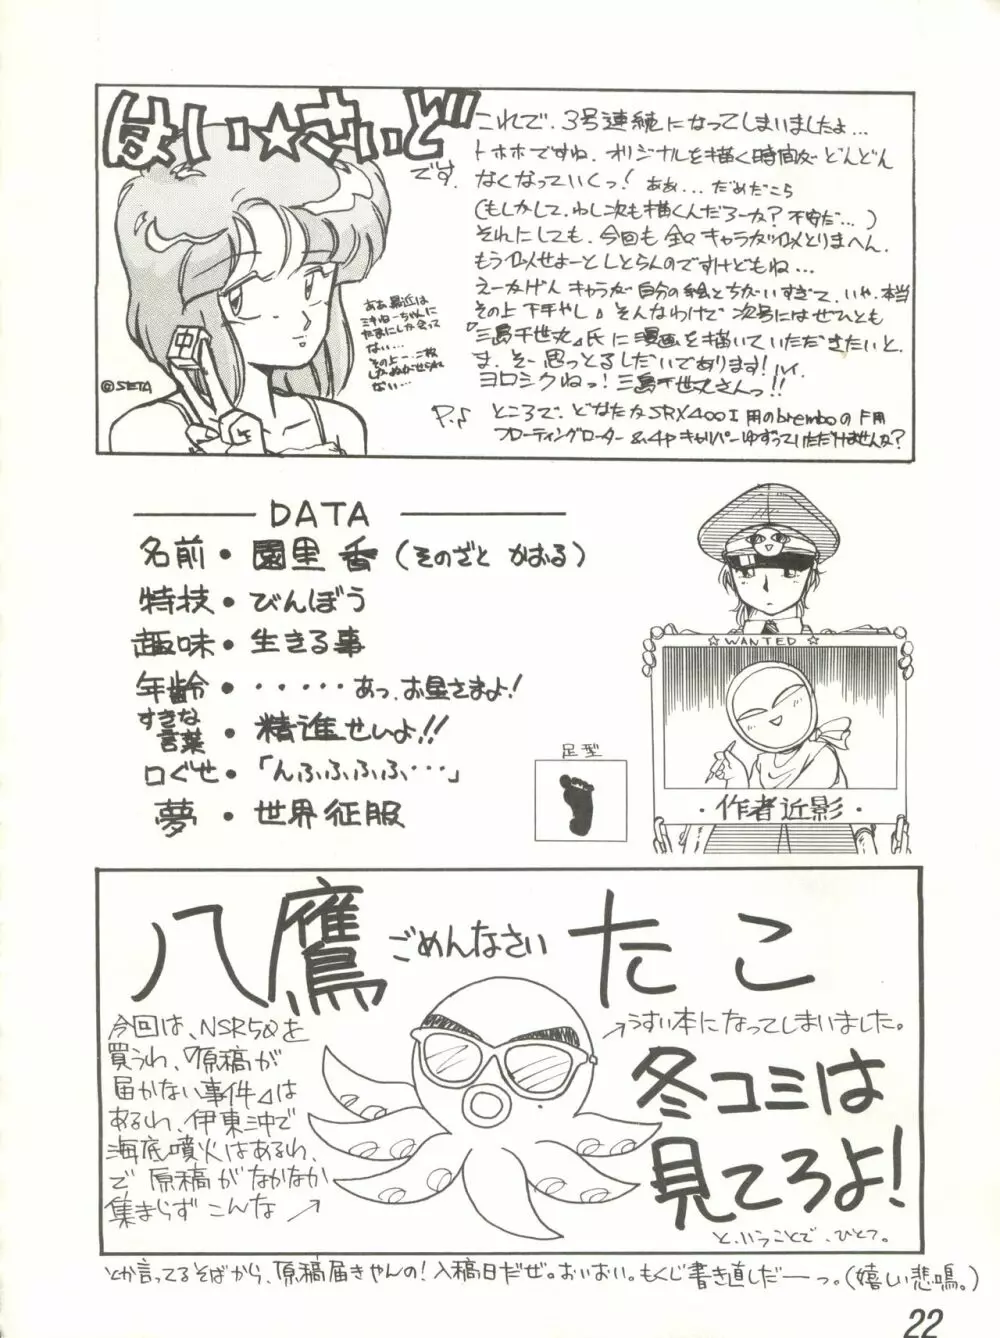 はい☆さいど
です。
これで、3号連続になってしまいましたよ…
トホホですね、オリジナルを描く時間がどんどん
なくなっていくっ! ああ…だめだこら
(もしかして、わし次も描くんだろーか? 不安だ…)
それにしても、今回も全々キャラがイメとりまへん。
もうイメせよーとしとらんのですけどもね…
えーかげんキャラが自分の絵とちがいすぎて、いや、本当
その上下手やし♪そんなわけで次号にはぜひとも
『三島千世丸』氏に漫画を描いていただきたいと、
ま、そー思っとるしだいであります! ハイ。
ヨロシクねっ! 三島千世丸さんっ!!
ああ最近は
ミキねーちゃんに
たまにしか会って
ない…
その上…二枚
しかぬがせられ
ない…
中
©SETA
P.♪
ところで、どなたかSRX400I用のbremboのF用
フローティングローター&4pキャリパーゆずっていただけませんか?
DATA
名前・園里 香(そのざと かおる)
特技・びんぼう
趣味・生きる事
年齢・・・・・・あっ、お星さまよ!
すきな
言葉・精進せいよ!!
口ぐせ・「んふふふふ…」
夢・世界征服
足型
☆WANTED☆
・作者近影・
八鷹 ごめんなさい たこ
今回は、NSR50を
買うわ、『原稿が
届かない事件』は
あるわ、伊東沖で
海底噴火はあるわ、
で原稿がなかなか
集まらずこんな
うすい本になってしまいました。
冬コミは
見てろよ!
と、いうことで、ひとつ。
とか言ってるそばから、原稿届きゃんの! 入稿日だぜ。おいおい。もくじ書き直しだーっ。(嬉しい悲鳴。)
22